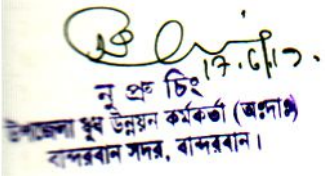 17.6.17.
নু প্রু চিং
উপজেলা যুব উন্নয়ন কর্মকর্তা (অঃদাঃ)
বান্দরবান সদর, বান্দরবান।